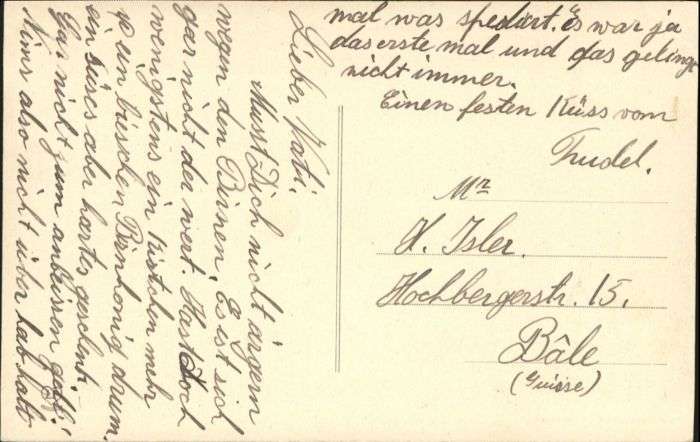 Lieber Vati!
Musst Dich nicht ärgern
wegen den Birnen. Es ist sich
gar nicht der wert. Hast doch
wenigstens ein Kistchen mehr
un bieschen Birnhonig drum.
ein süses aber hartes geschenk
Gar nicht zum anbeissen gäll!
Nims also nicht über hab halt
mal was spediert. Es war ja
das erste mal und das gelingt
nicht immer.
Einen festen Küss vom
Trudel.
Mr
H. Isler.
Hochbergerstr. 15.
Bâle
(Suisse)